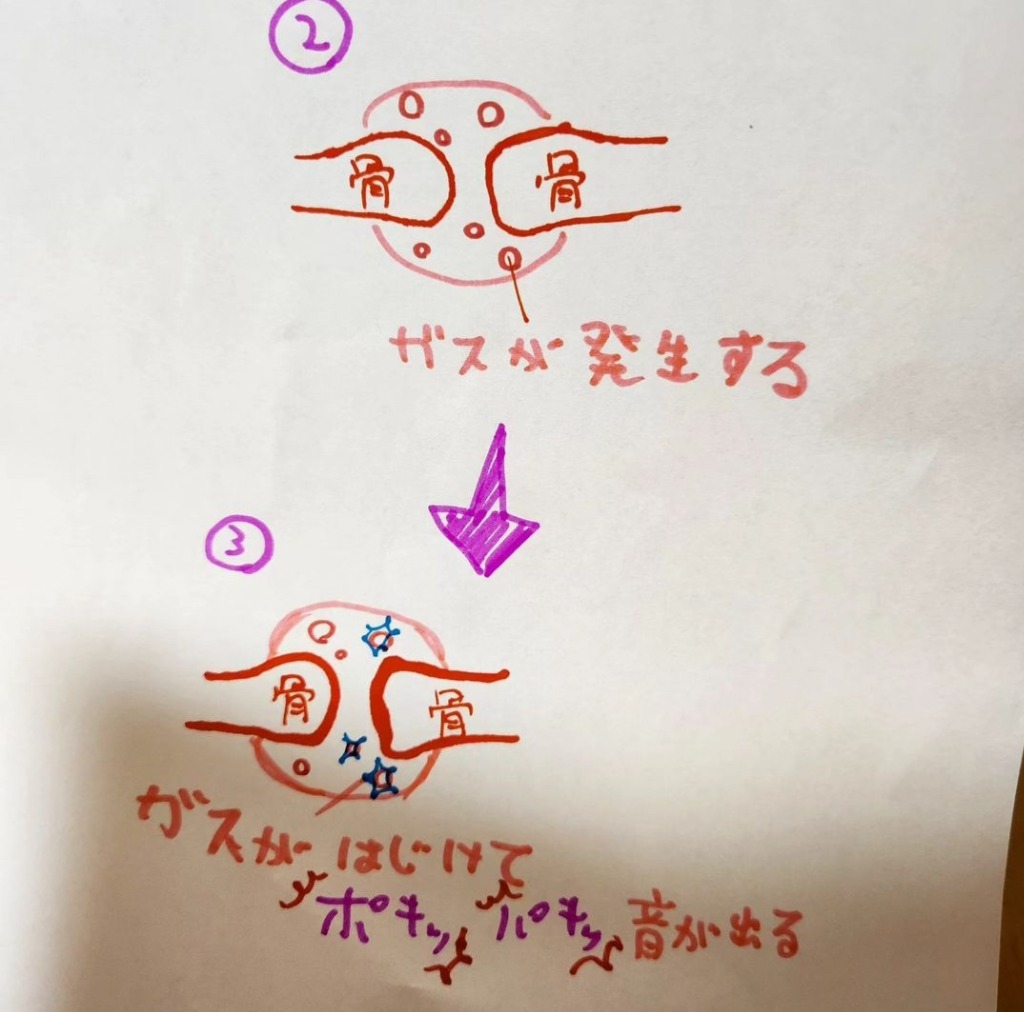 ②
骨 骨
ガスが発生する
③
骨 骨
ガスがはじけて
ポキッ パキッ 音が出る